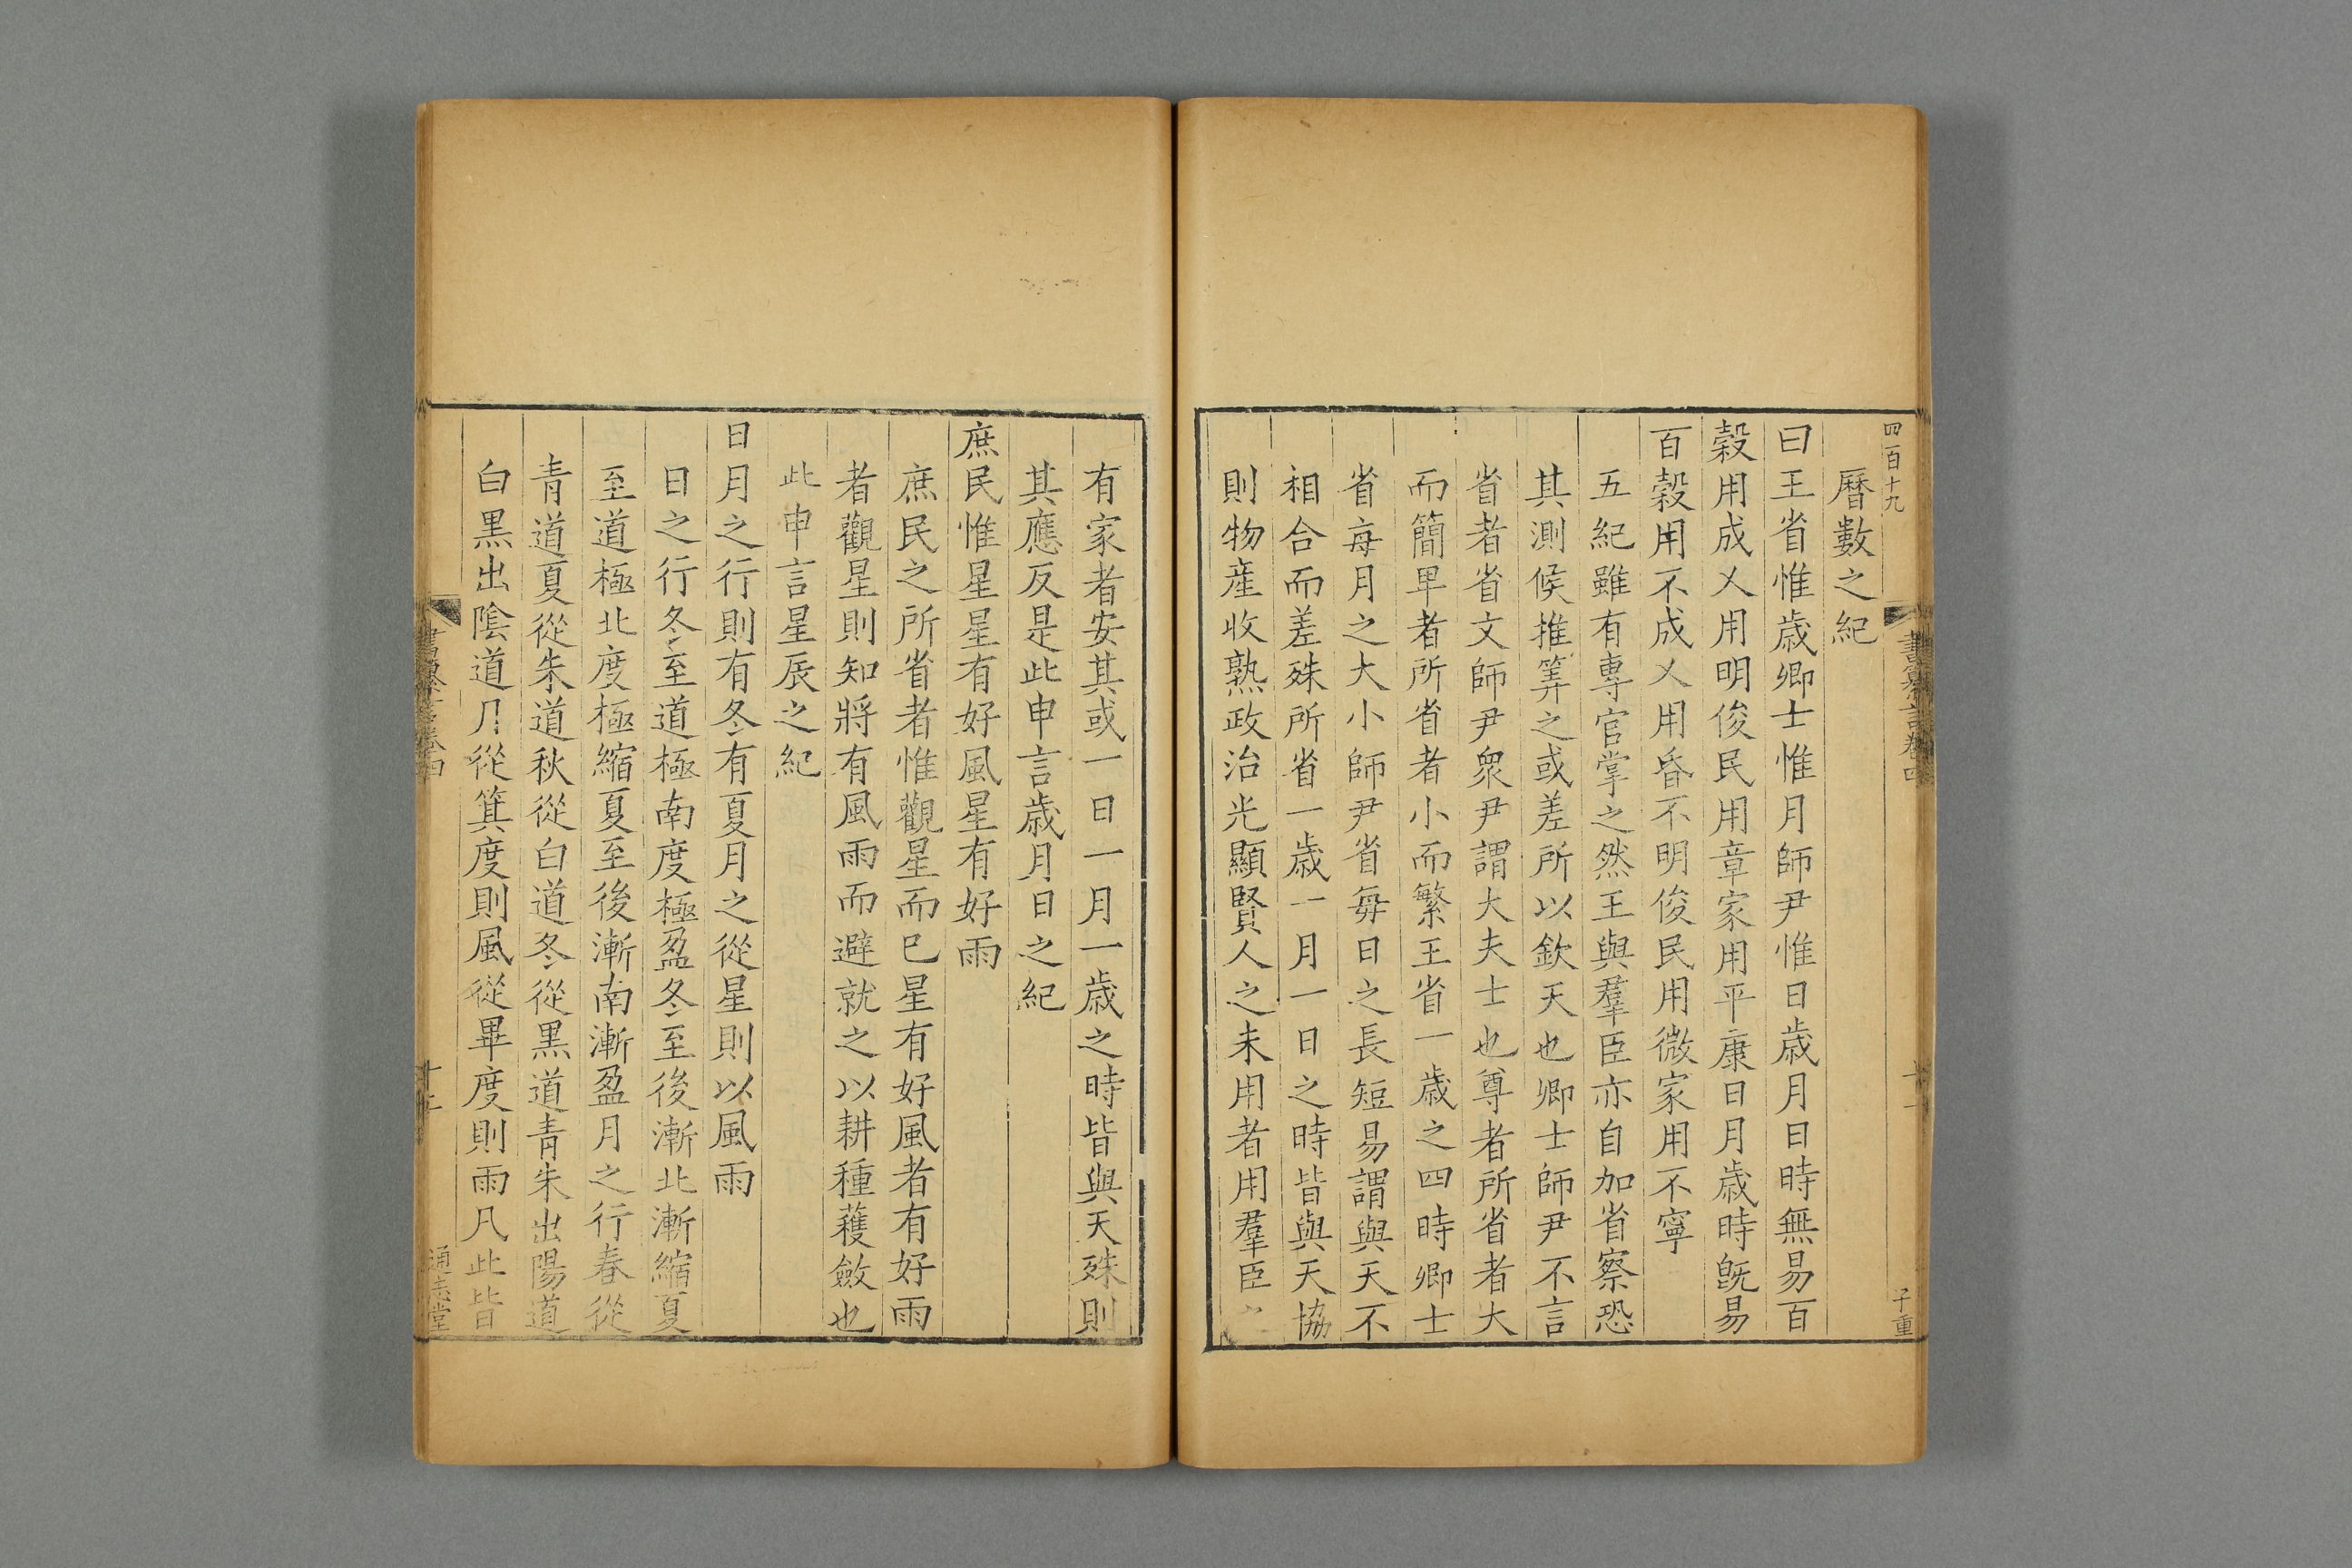 四百十九
子重
曆數之紀
曰王省惟歲卿士惟月師尹惟日歲月日時無易百
穀用成乂用明俊民用章家用平康日月歲時旣易
百穀用不成乂用昏不明俊民用微家用不寧
五紀雖有專官掌之然王與羣臣亦自加省察恐
其測候推筭之或差所以欽天也卿士師尹不言
省者省文師尹衆尹謂大夫士也尊者所省者大
而簡卑者所省者小而繁王省一歲之四時卿士
省每月之大小師尹省每日之長短易謂與天不
相合而差殊所省一歲一月一日之時皆與天協
則物產收熟政治光顯賢人之未用者用羣臣之
有家者安其或一日一月一歲之時皆與天殊則
其應反是此申言歲月日之紀
庶民惟星星有好風星有好雨
庶民之所省者惟觀星而已星有好風者有好雨
者觀星則知將有風雨而避就之以耕種蓷斂也
此申言星辰之紀
日月之行則有冬有夏月之從星則以風雨
日之行冬至道極南度極盈冬至後漸北漸縮夏
至道極北度極縮夏至後漸南漸盈月之行春從
青道夏從朱道秋從白道冬從黑道青朱出陽道
白黑出陰道月從箕度則風從畢度則雨凡此皆
通志堂